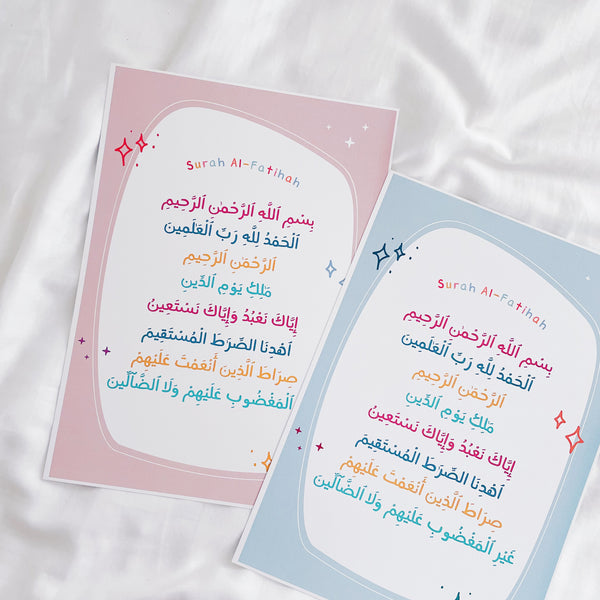 Surah Al-Fatihah
بِسْمِ اَللَّهِ اَلرَّحْمٰنِ اَلرَّحِيمِ
اَلْحَمْدُ لِلَّهِ رَبِّ اَلْعَلَمِينَ
اَلرَّحْمٰنِ اَلرَّحِيمِ
مَلِكِ يَوْمِ اَلدِّينِ
إِيَّاكَ نَعْبُدُ وَإِيَّاكَ نَسْتَعِينُ
اَهْدِنَا اَلصِّرَطَ اَلْمُسْتَقِيمَ
صِرَاطَ اَلَّذِينَ أَنْعَمْتَ عَلَيْهِمْ
اَلْمَغْضُوبِ عَلَيْهِمْ وَلَا اَلضَّآلِّينَ
Surah Al-Fatihah
بِسْمِ اَللَّهِ اَلرَّحْمٰنِ اَلرَّحِيمِ
اَلْحَمْدُ لِلَّهِ رَبِّ اَلْعَلَمِينَ
اَلرَّحْمٰنِ اَلرَّحِيمِ
مَلِكِ يَوْمِ اَلدِّينِ
إِيَّاكَ نَعْبُدُ وَإِيَّاكَ نَسْتَعِينُ
اَهْدِنَا اَلصِّرَطَ اَلْمُسْتَقِيمَ
صِرَاطَ اَلَّذِينَ أَنْعَمْتَ عَلَيْهِمْ
غَيْرِ اِلْمَغْضُوبِ عَلَيْهِمْ وَلَا اَلضَّآلِّينَ